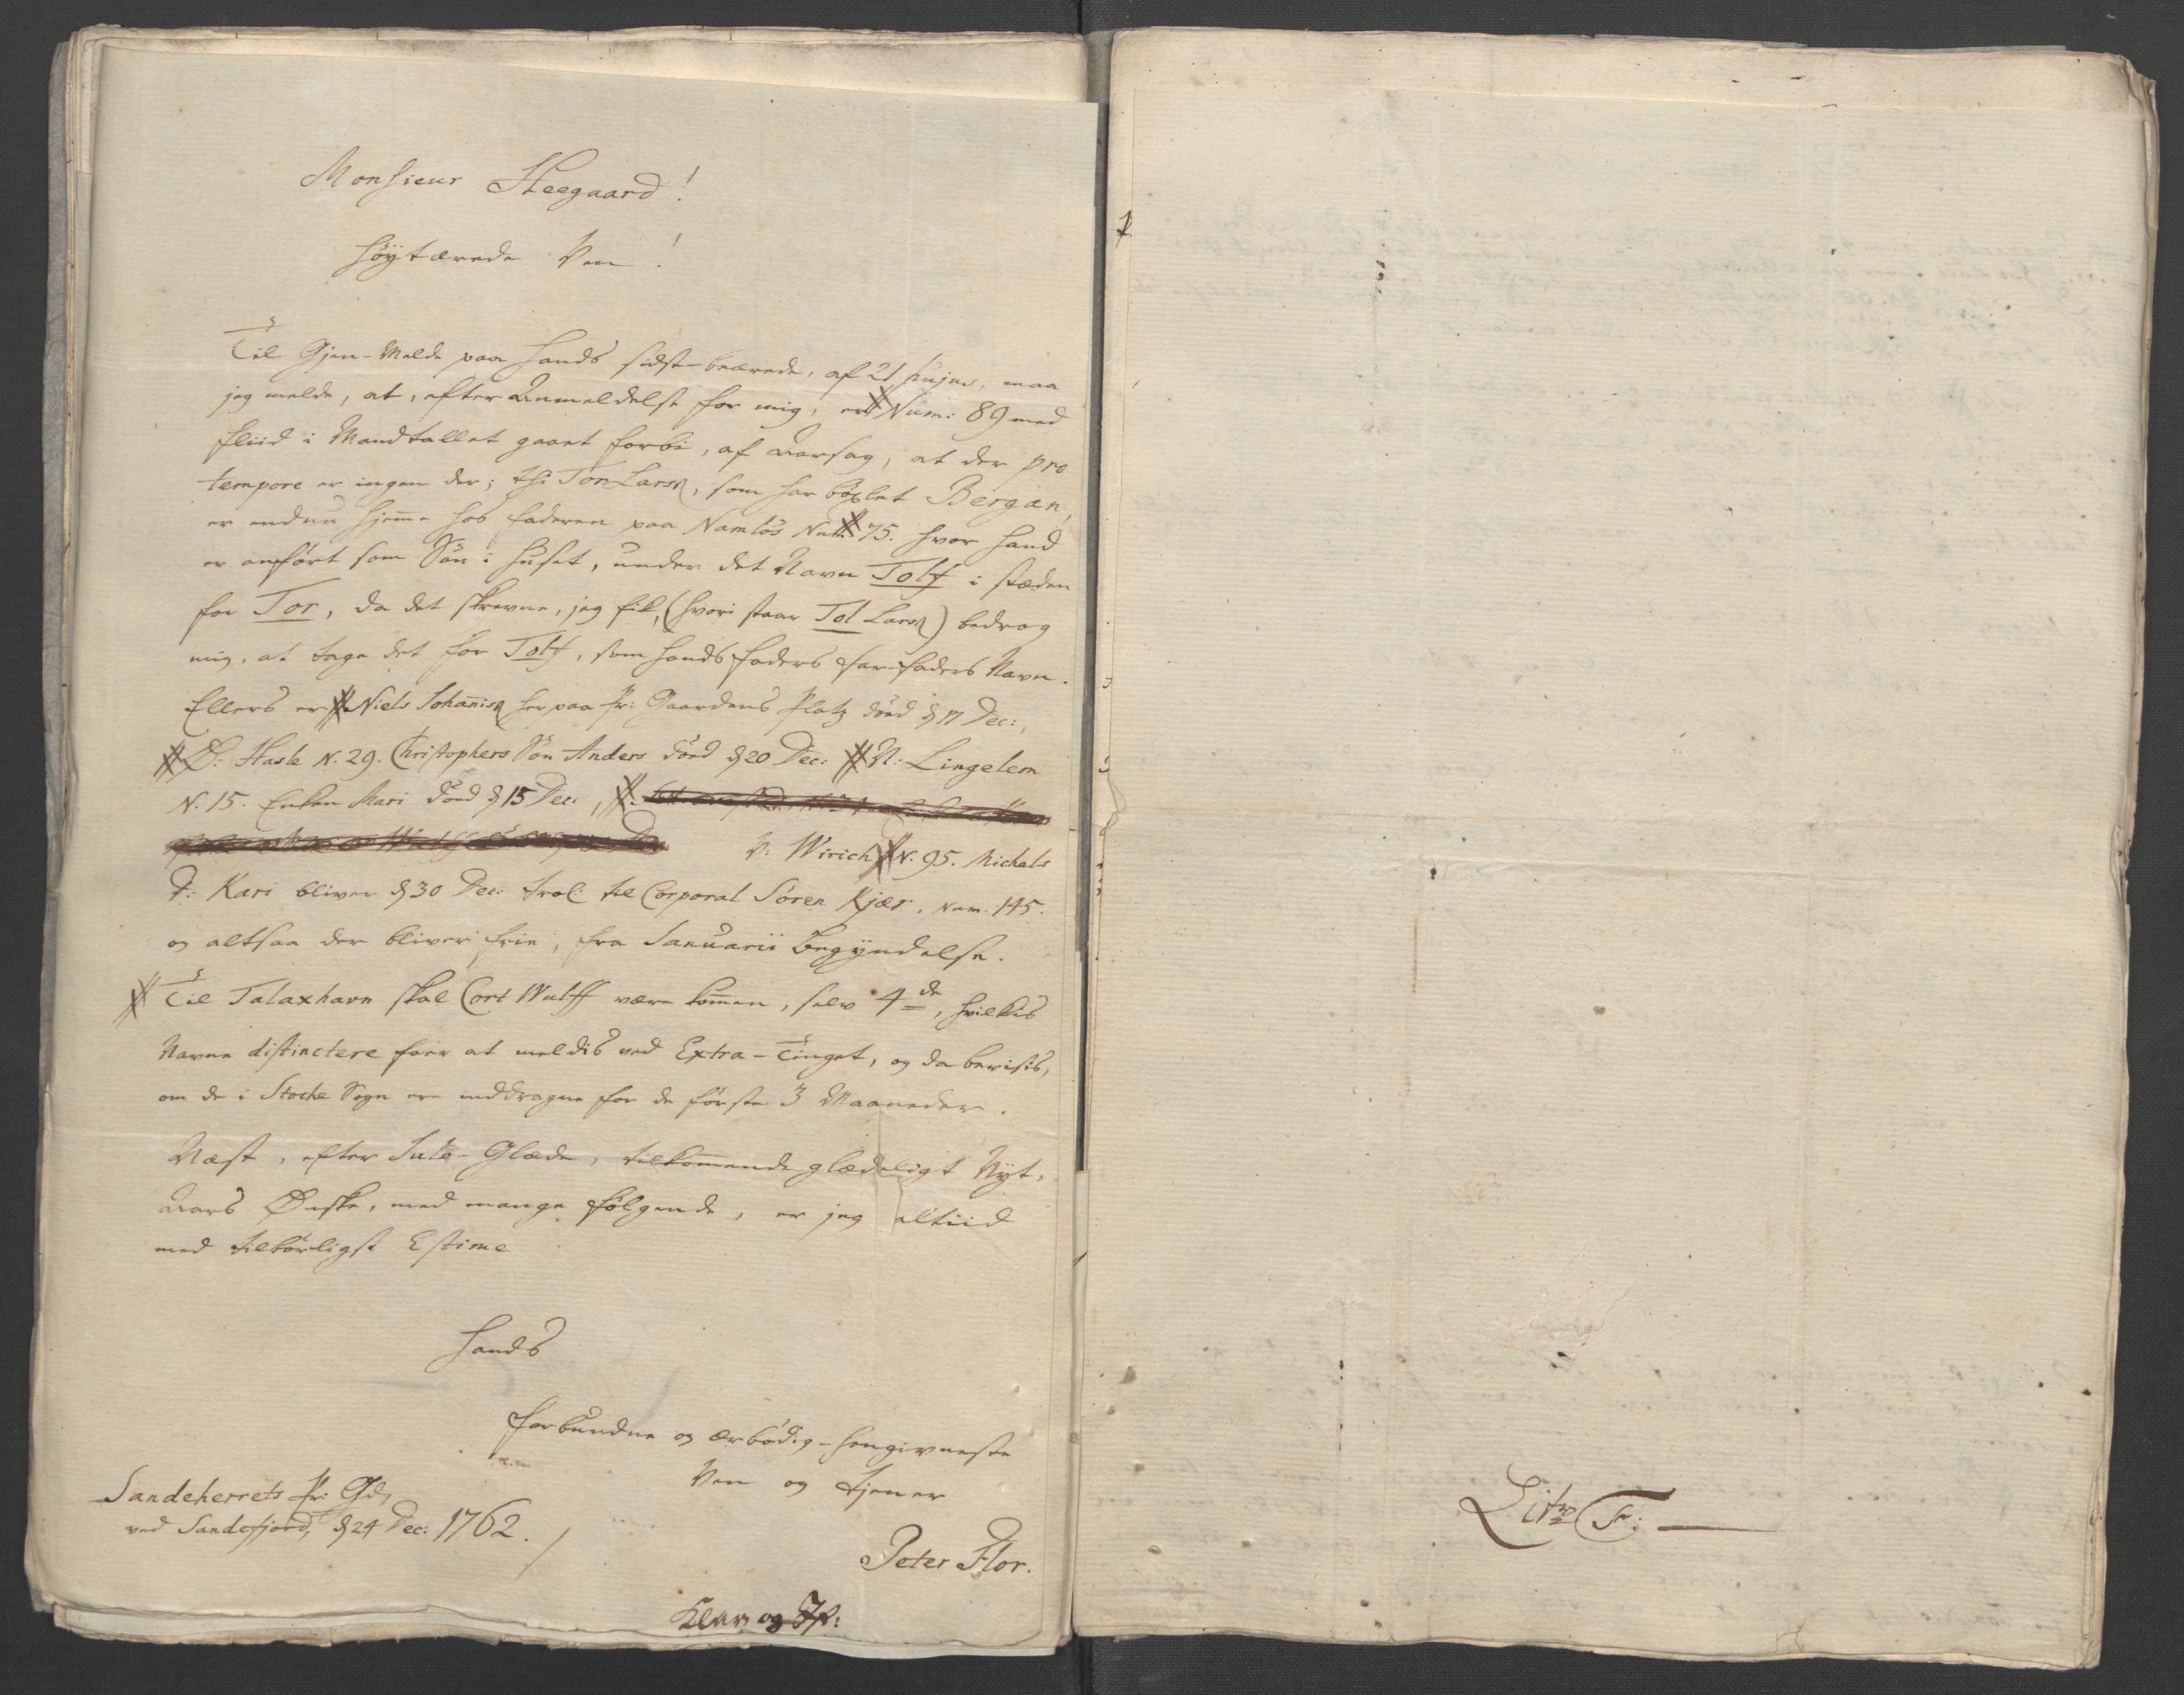 Monsieur Heegaard!
Høytærede Ven!
Til Gjen-Melde paa Hands sidst-beærede, af 21 hujus, maa
jeg melde, at, efter Anmeldelse for mig, er Num: 89 med
Fliid i Mandtallet gaaet forbi, af Aarsag, at der pro
tempore er ingen der; thi Tor Larss, som har böxlet Bergan,
er endnu hjem̄e hos Faderen paa Namlös Num 75. hvor hand
er anført som Sön i Huset, under det Navn Tolf i stæden
for Tor, da det skrevne, jeg fik, (hvori staar Tol Larss) bedrog
mig, at tage det for Tolf, som hands Faders Far-Faders Navn.
Ellers er Niels Johan̄iss her paa Pr: Gaardens Platz död d 17 Dec:,
Ø: Hasle N. 29. Christophers Sön Anders död d 20 Dec: N: Lingelem
N. 15. Enken Mari död d 15 Dec:,
V: Wirich N. 95. Michels
D: Kari bliver d 30 Dec: trol: til Corporal Sören Kjær, Num. 145.
og altsaa der bliver frie, fra Januarii Begyndelse.
Til Talaxhavn skal Cort Wulff være kom̄en, selv 4de, hvilkes
Navne distinctere faar at meldis ved Extra-Tinget, og da bevisis,
om de i Stocke Sogn ere inddragne for de förste 3 Maaneder.
Næst, efter Jule-Glæde, tilkom̄ende glædeligt Nyt-
Aars Ønske, med mange fölgende, er jeg altiid
med tilbörligst Estime
Hands
forbundne og ærbödig-hengivneste
Ven og tjener
Peter Flor.
Sandeherrets Pr: Gd,
ved Sandefjord, d 24 Dec: 1762.
Litra F: